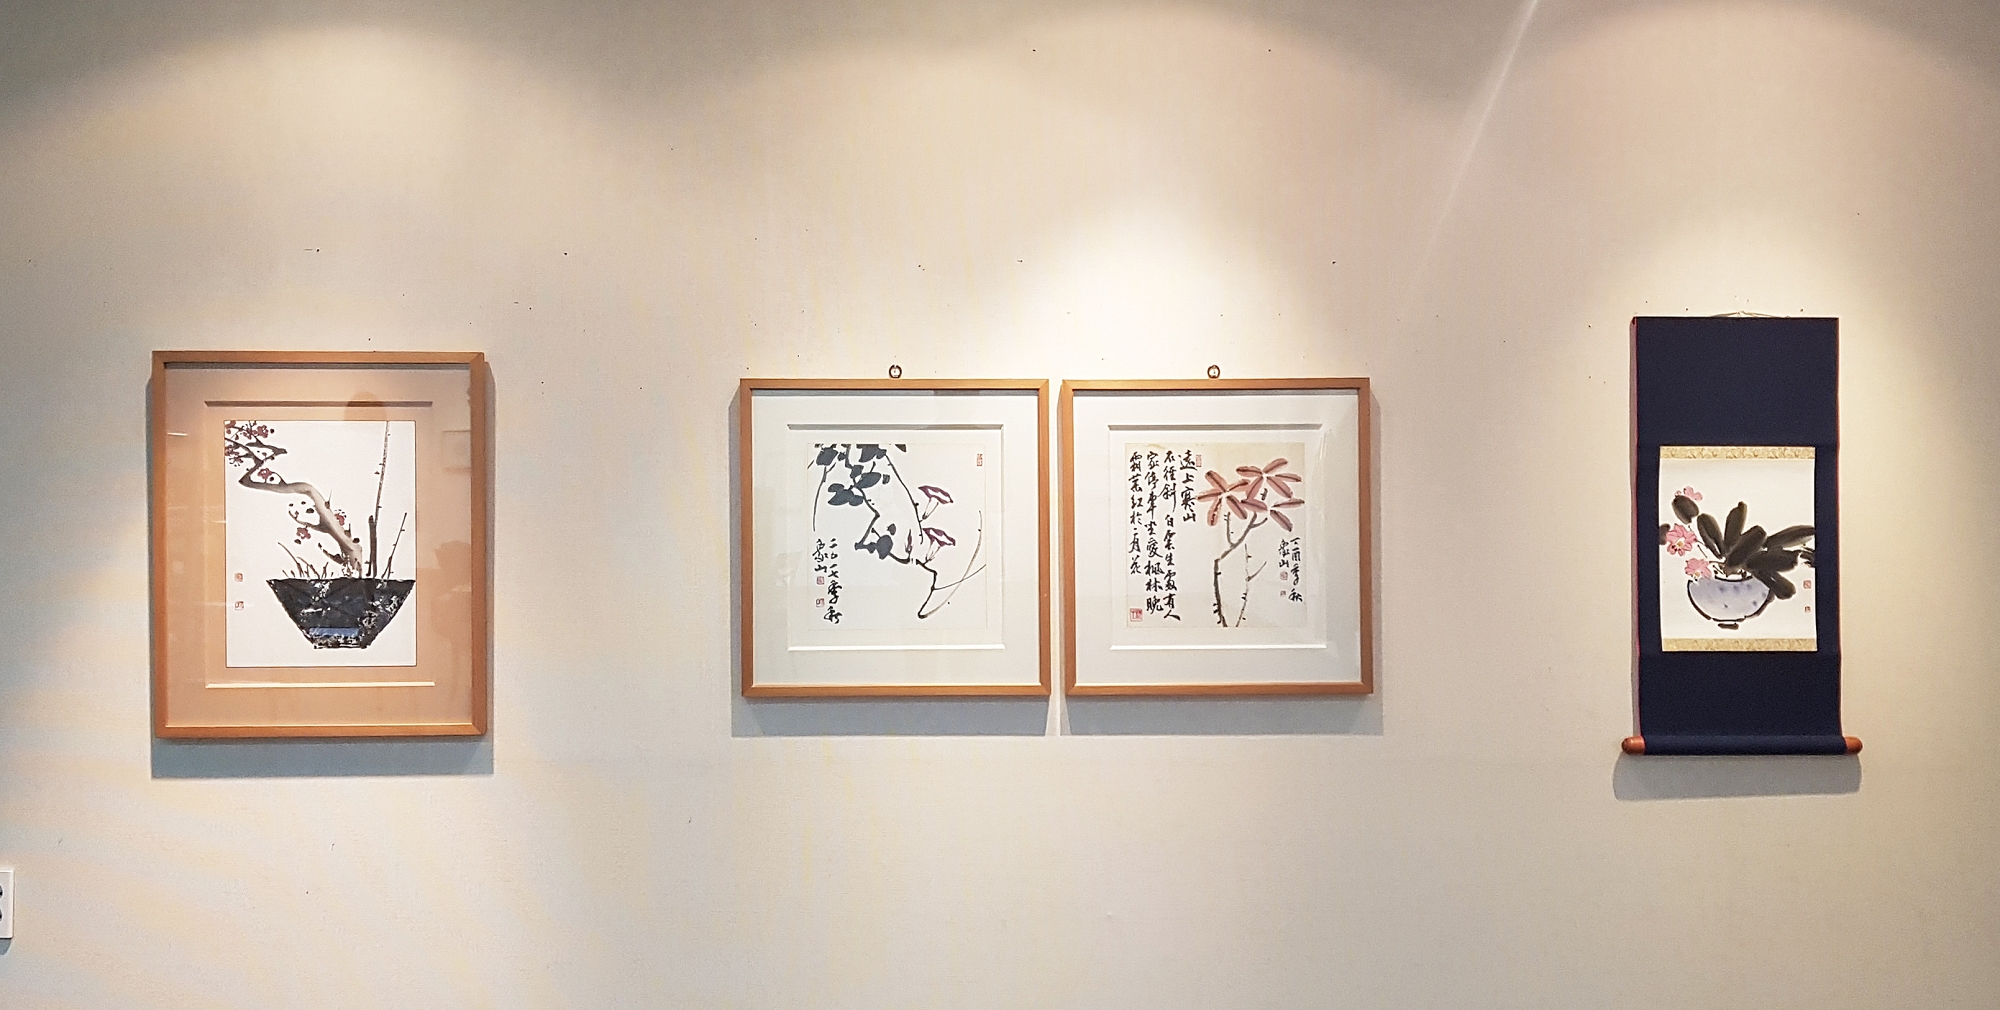 二〇一七季秋
遠上寒山
石徑斜白雲生處有人
家停車坐愛楓林晚
霜葉紅於二月花
丁酉季秋